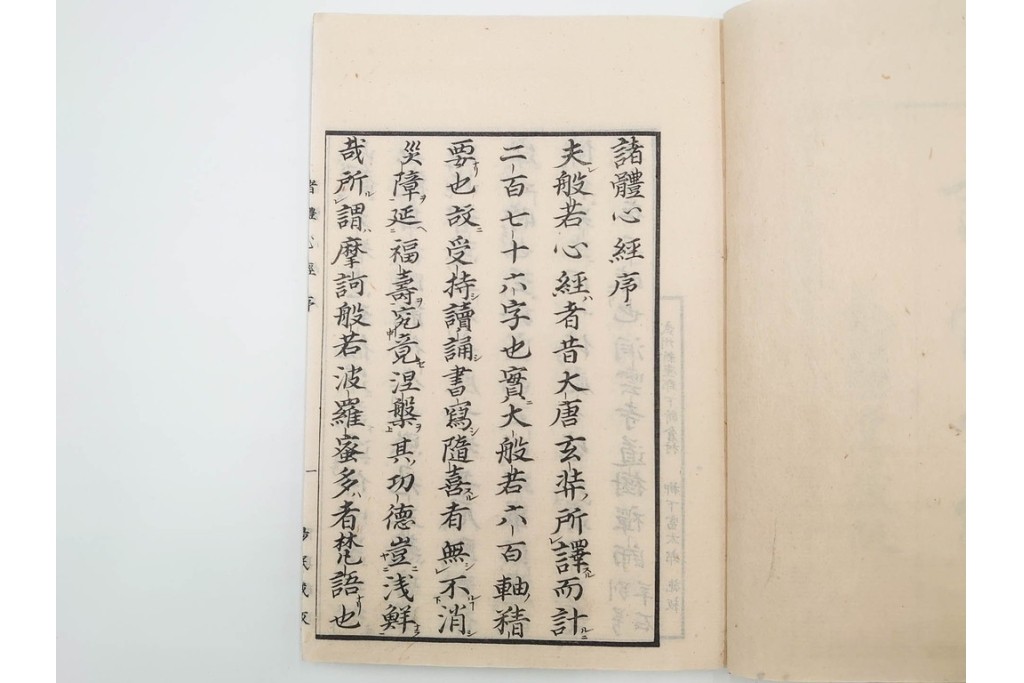 諸體心經序
夫般若心經者昔大唐玄弉所譯而計
二百七十六字也實大般若六百軸精
要也故受持讀誦書寫隨喜者無不消
災障延福壽究竟涅槃其功德豈浅鮮
哉所謂摩訶般若波羅蜜多者梵語也
諸體心經序
一